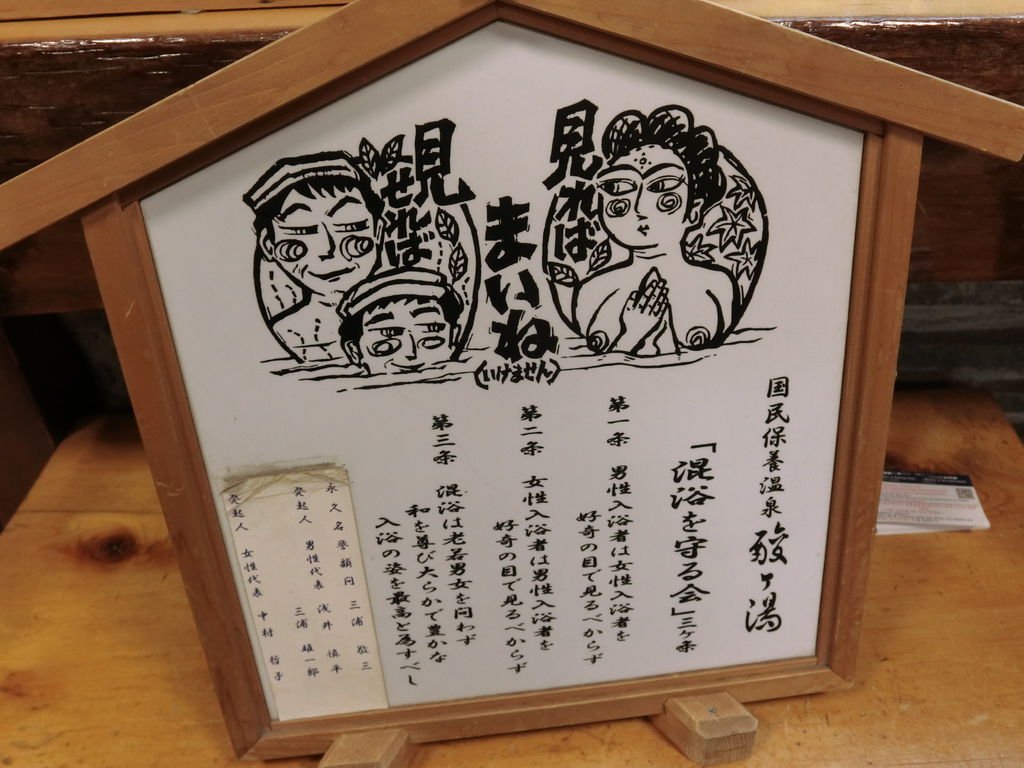 見れば
見せれば
まいね
(いけません)
国民保養温泉 酸ヶ湯
「混浴を守る会」三ヶ条
第一条 男性入浴者は女性入浴者を
好奇の目で見るべからず
第二条 女性入浴者は男性入浴者を
好奇の目で見るべからず
第三条 混浴は老若男女を問わず
和を尊び大らかで豊かな
入浴の姿を最高と為すべし
永久名誉顧問 三浦 敬三
発起人 男性代表 浅井 慎平
三浦 雄一郎
発起人 女性代表 中村 哲子